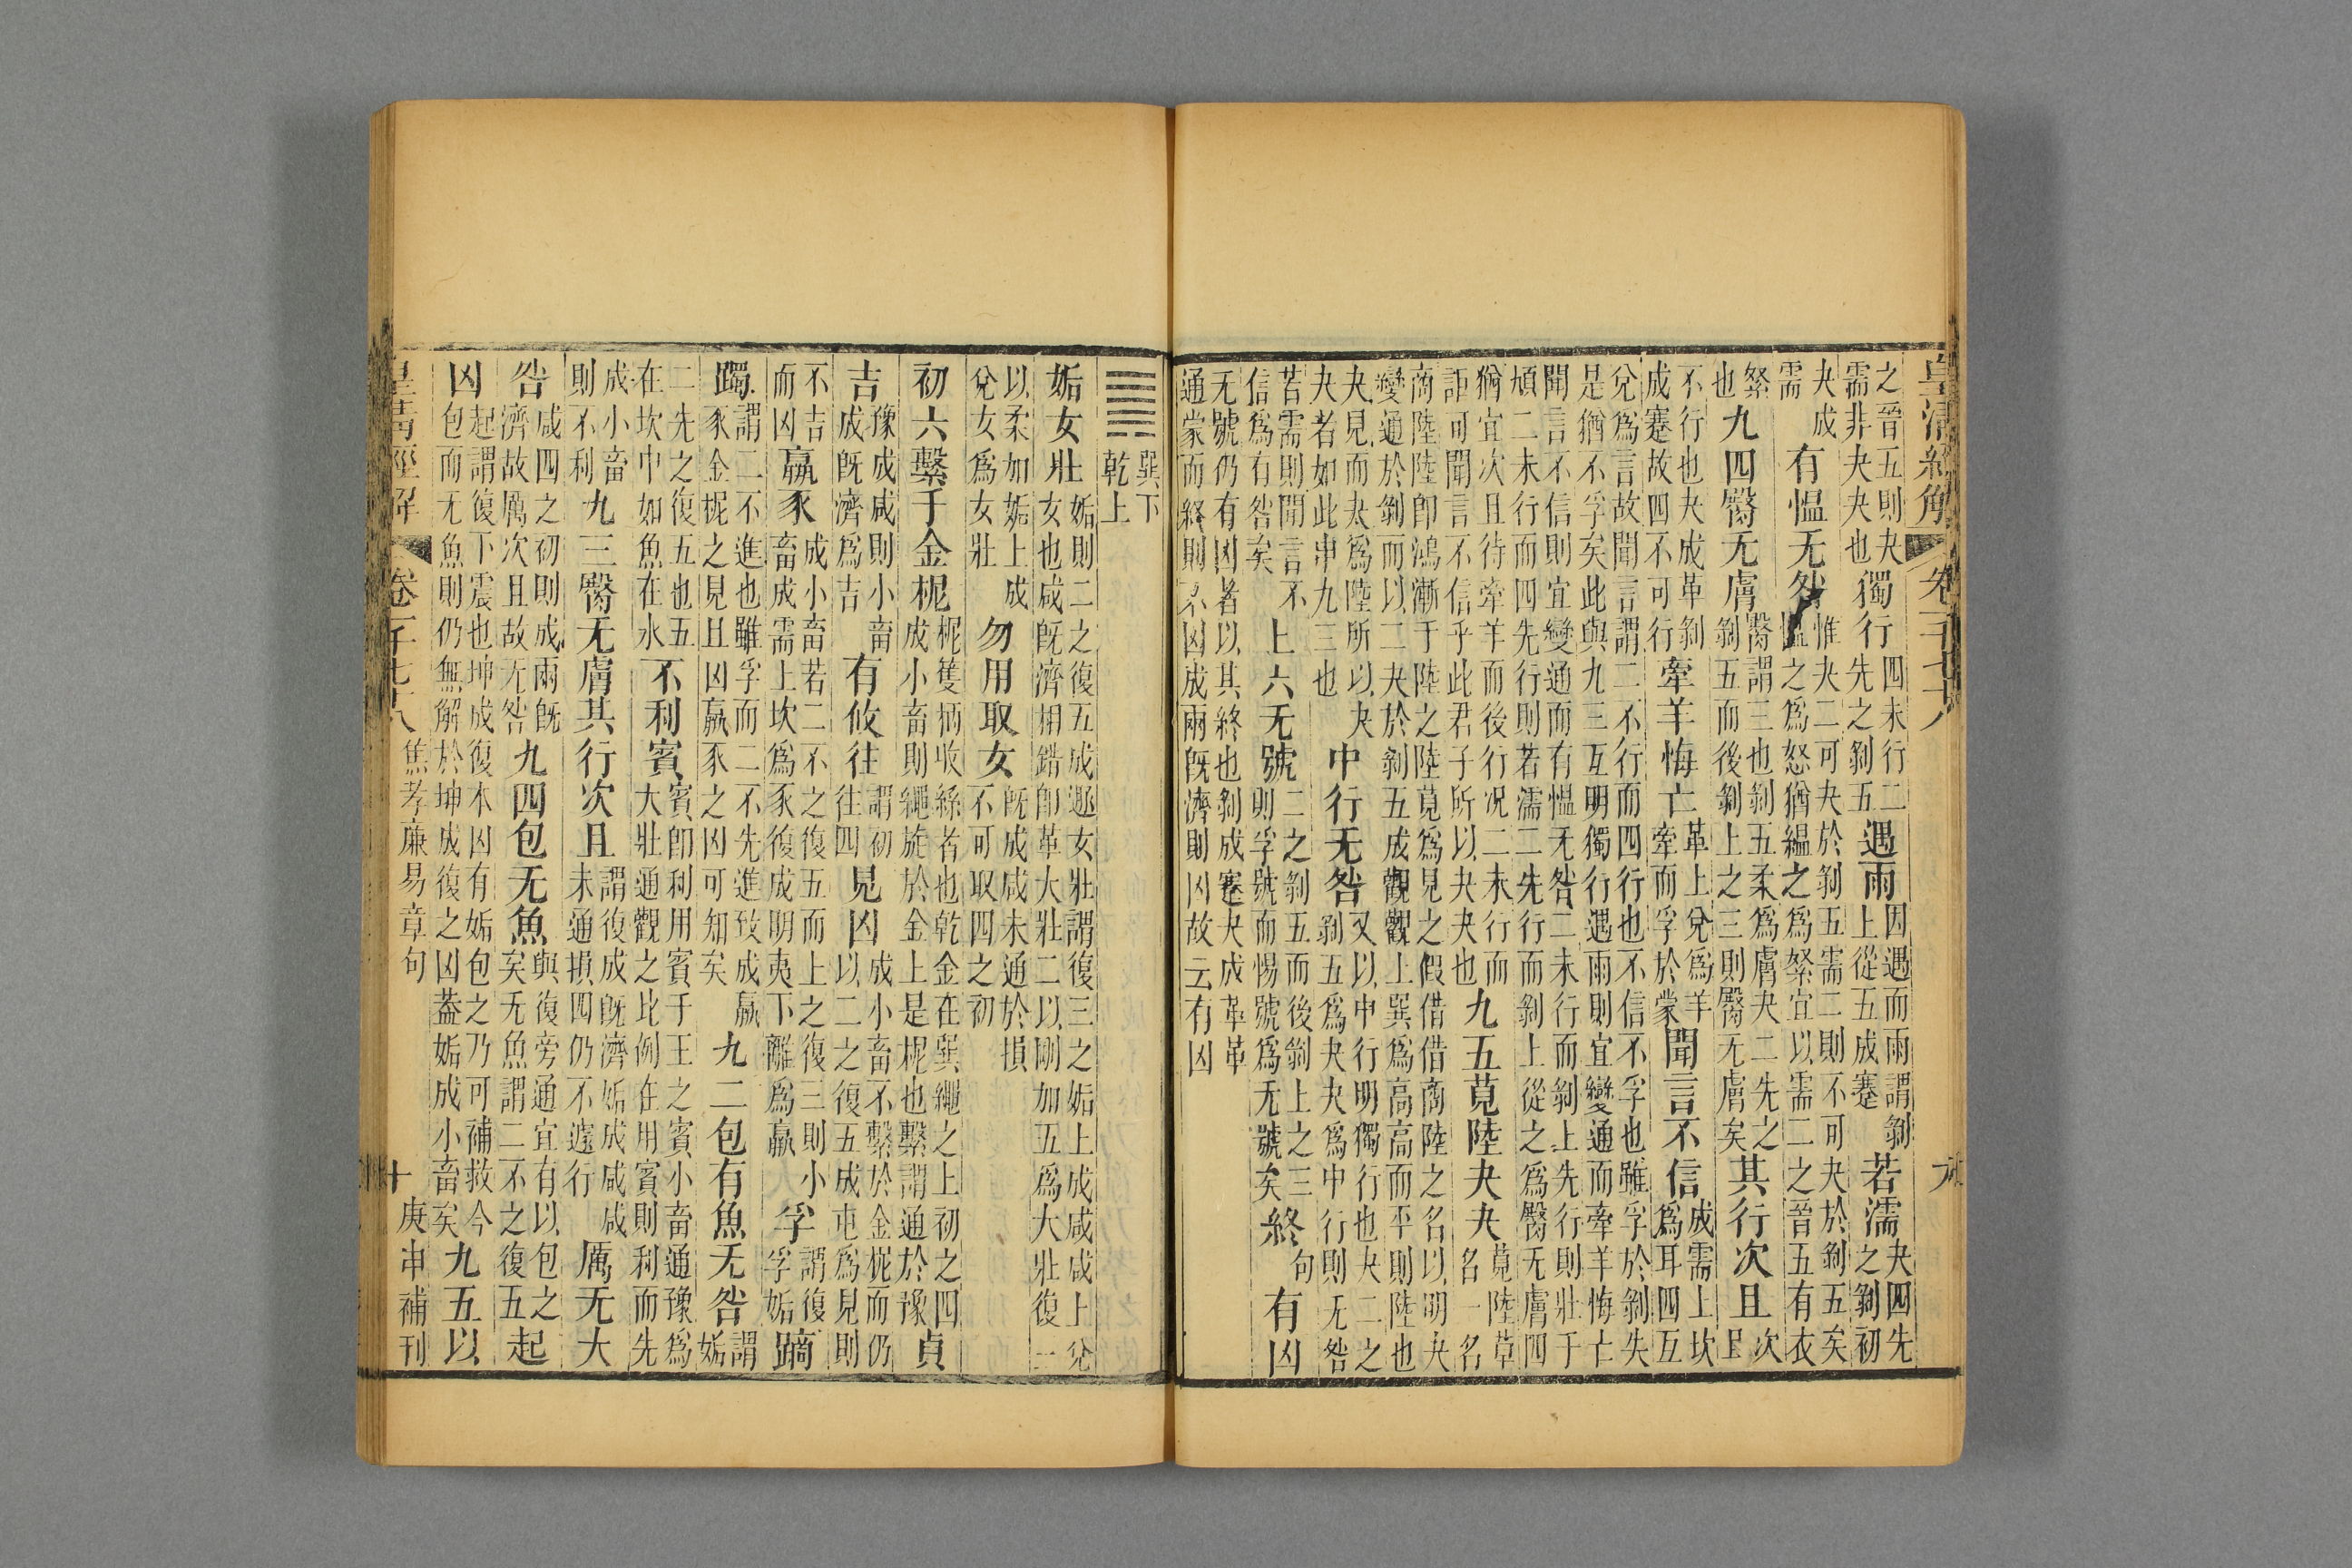 皇清經解 卷一千七十八 九
之晉五則夬需非夬夬也獨行四未行二先之剝五遇雨因遇而雨謂剝上從五成蹇若濡夬四先之剝初
夬成需有慍无咎惟夬二可夬於剝五需二則不可夬於剝五矣慍之爲怒猶縕之爲絮宜以需二之晉五有衣
絮也九四臀无膚臀謂三也剝五柔爲膚夬二先之剝五而後剝上之三則臀无膚矣其行次且次且
不行也夬成革剝成蹇故四不可行牽羊悔亡革上兌爲羊牽而孚於蒙聞言不信成需上坎爲耳四互
兌爲言故聞言謂二不行而四行也不信不孚也雖孚於剝失是猶不孚矣此與九三互明獨行遇雨則宜變通而牽羊悔亡
聞言不信則宜變通而有慍无咎二未行而剝上先行則壯于頄二未行而四先行則若濡二先行而剝上從之爲臀无膚四
猶宜次且待牽羊而後行况二未行而詎可聞言不信乎此君子所以夬夬也九五莧陸夬夬莧陸草名一名
商陸陸即鴻漸于陸之陸莧爲見之假借借商陸之名以明夬變通於剝而以二夬於剝五成觀觀上巽爲高高而平則陸也
夬見而夬爲陸所以夬夬者如此申九三也中行无咎又以中行明獨行也夬二之剝五爲夬夬爲中行則无咎
若需則聞言不信爲有咎矣上六无號二之剝五而後剝上之三則孚號而惕號爲无號矣終句有凶
无號仍有凶者以其終也剝成蹇夬成革革通蒙而終則不凶成兩既濟則凶故云有凶
䷫巽下乾上
姤女壯姤則二之復五成遯女壯謂復三之姤上成咸咸上兌女也咸既濟相錯即革大壯二以剛加五爲大壯復二
以柔加姤上成兌女爲女壯勿用取女既成咸未通於損不可取四之初
初六繫于金柅柅篗柄收絲者也乾金在巽繩之上初之四成小畜則繩旋於金上是柅也繫謂通於豫貞
吉豫成咸則小畜成既濟爲吉有攸往謂初往四見凶成小畜不繫於金柅而仍以二之復五成屯爲見則
不吉而凶羸豕成小畜若二不之復五而上之復三則小畜成需上坎爲豕復成明夷下離爲羸孚謂復孚姤蹢
躅謂二不進也雖孚而二不先進致成羸豕金柅之見且凶羸豕之凶可知矣九二包有魚无咎謂姤
二先之復五也五在坎中如魚在水不利賓賓即利用賓于王之賓小畜通豫爲大壯通觀之比例在用賓則利而先
成小畜則不利九三臀无膚其行次且謂復成既濟姤成咸咸未通損四仍不遽行厲无大
咎咸四之初則成兩既濟故厲次且故无咎九四包无魚與復旁通宜有以包之矣无魚謂二不之復五起
凶起謂復下震也坤成復本凶有姤包之乃可補救今包而无魚則仍無解於坤成復之凶蓋姤成小畜矣九五以
皇清經解 卷一千七十八 焦孝廉易章句 十 庚申補刊